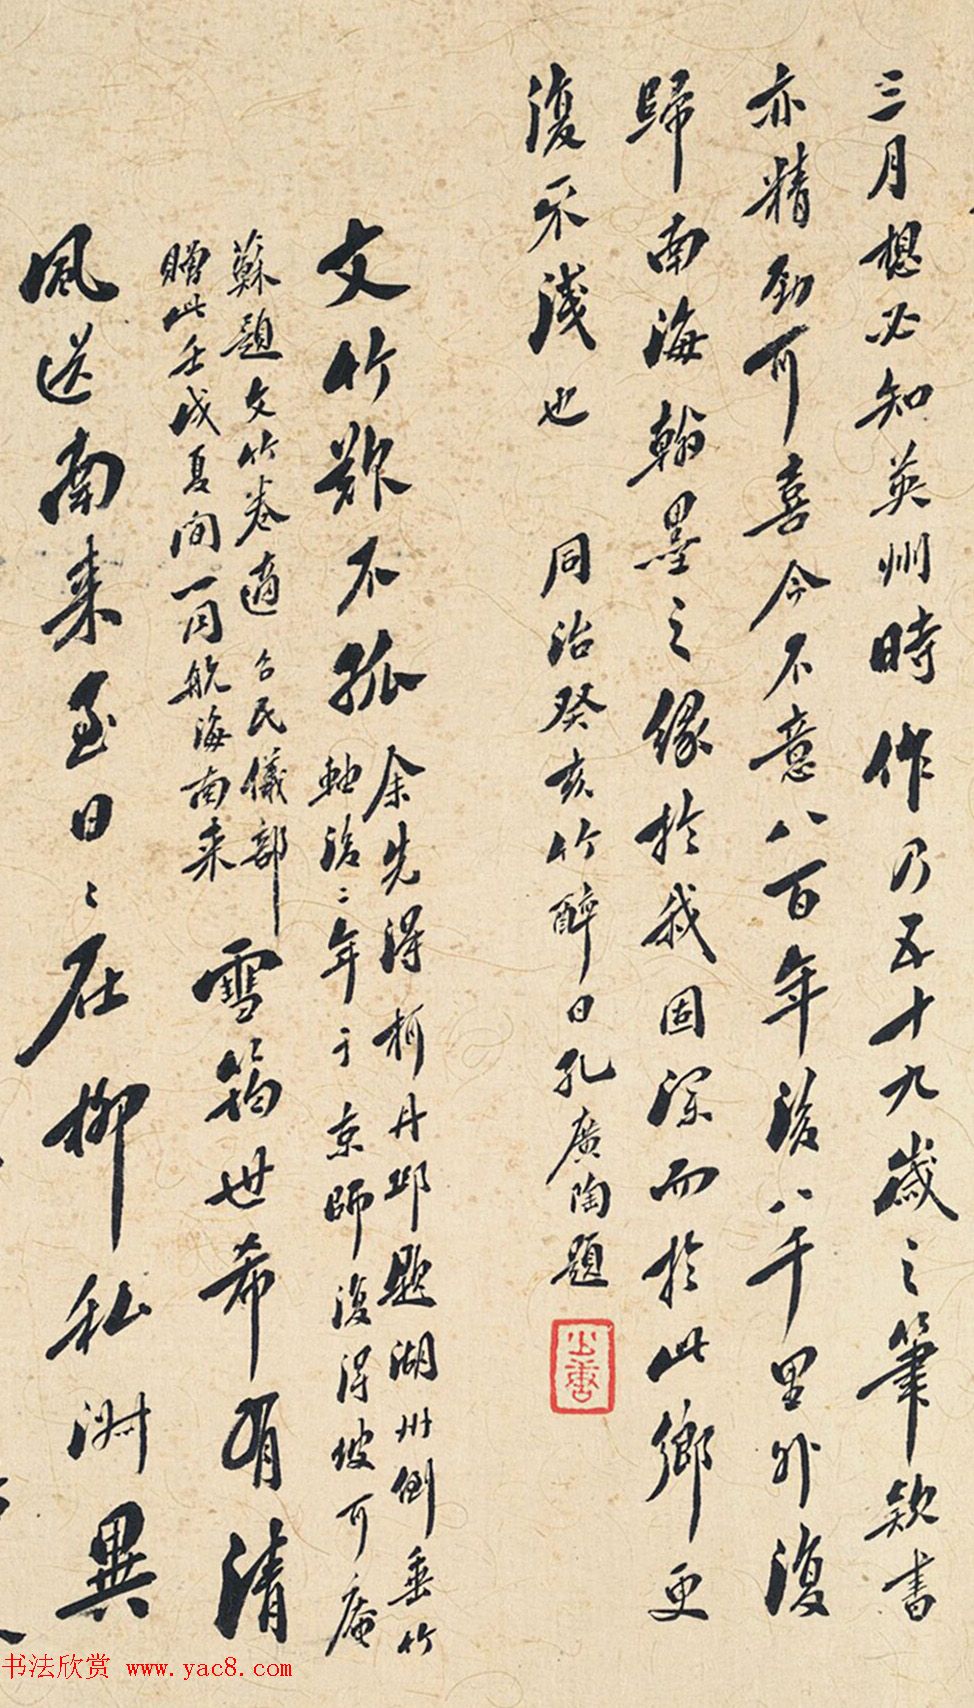 三月想必知英州時作乃五十九歲之筆款書
亦精勁可喜今不意八百年後八千里外復
歸南海翰墨之緣於我固深而於此鄉更
復不淺也　同治癸亥竹醉日孔廣陶題
文竹歎不孤　余先得柯丹邱題湖州倒垂竹
軸後二年于京師復得坡可庵
蘇題文竹卷適　民儀部
贈此壬戌夏間一同航海南來　雪筠世希有清
風送南来至日日在柳私淑異
书法欣赏 www.yac8.com